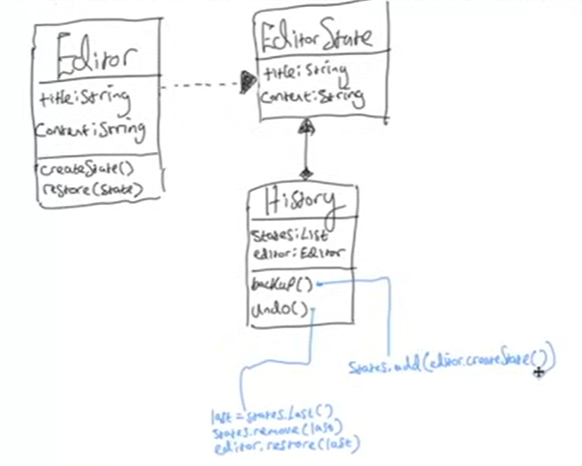 Editor
title:String
Content:String
createState()
restore(state)
EditorState
title:String
Content:String
History
states:List
editor:Editor
backup()
undo()
states.add(editor.createState())
last = states.last()
states.remove(last)
editor.restore(last)